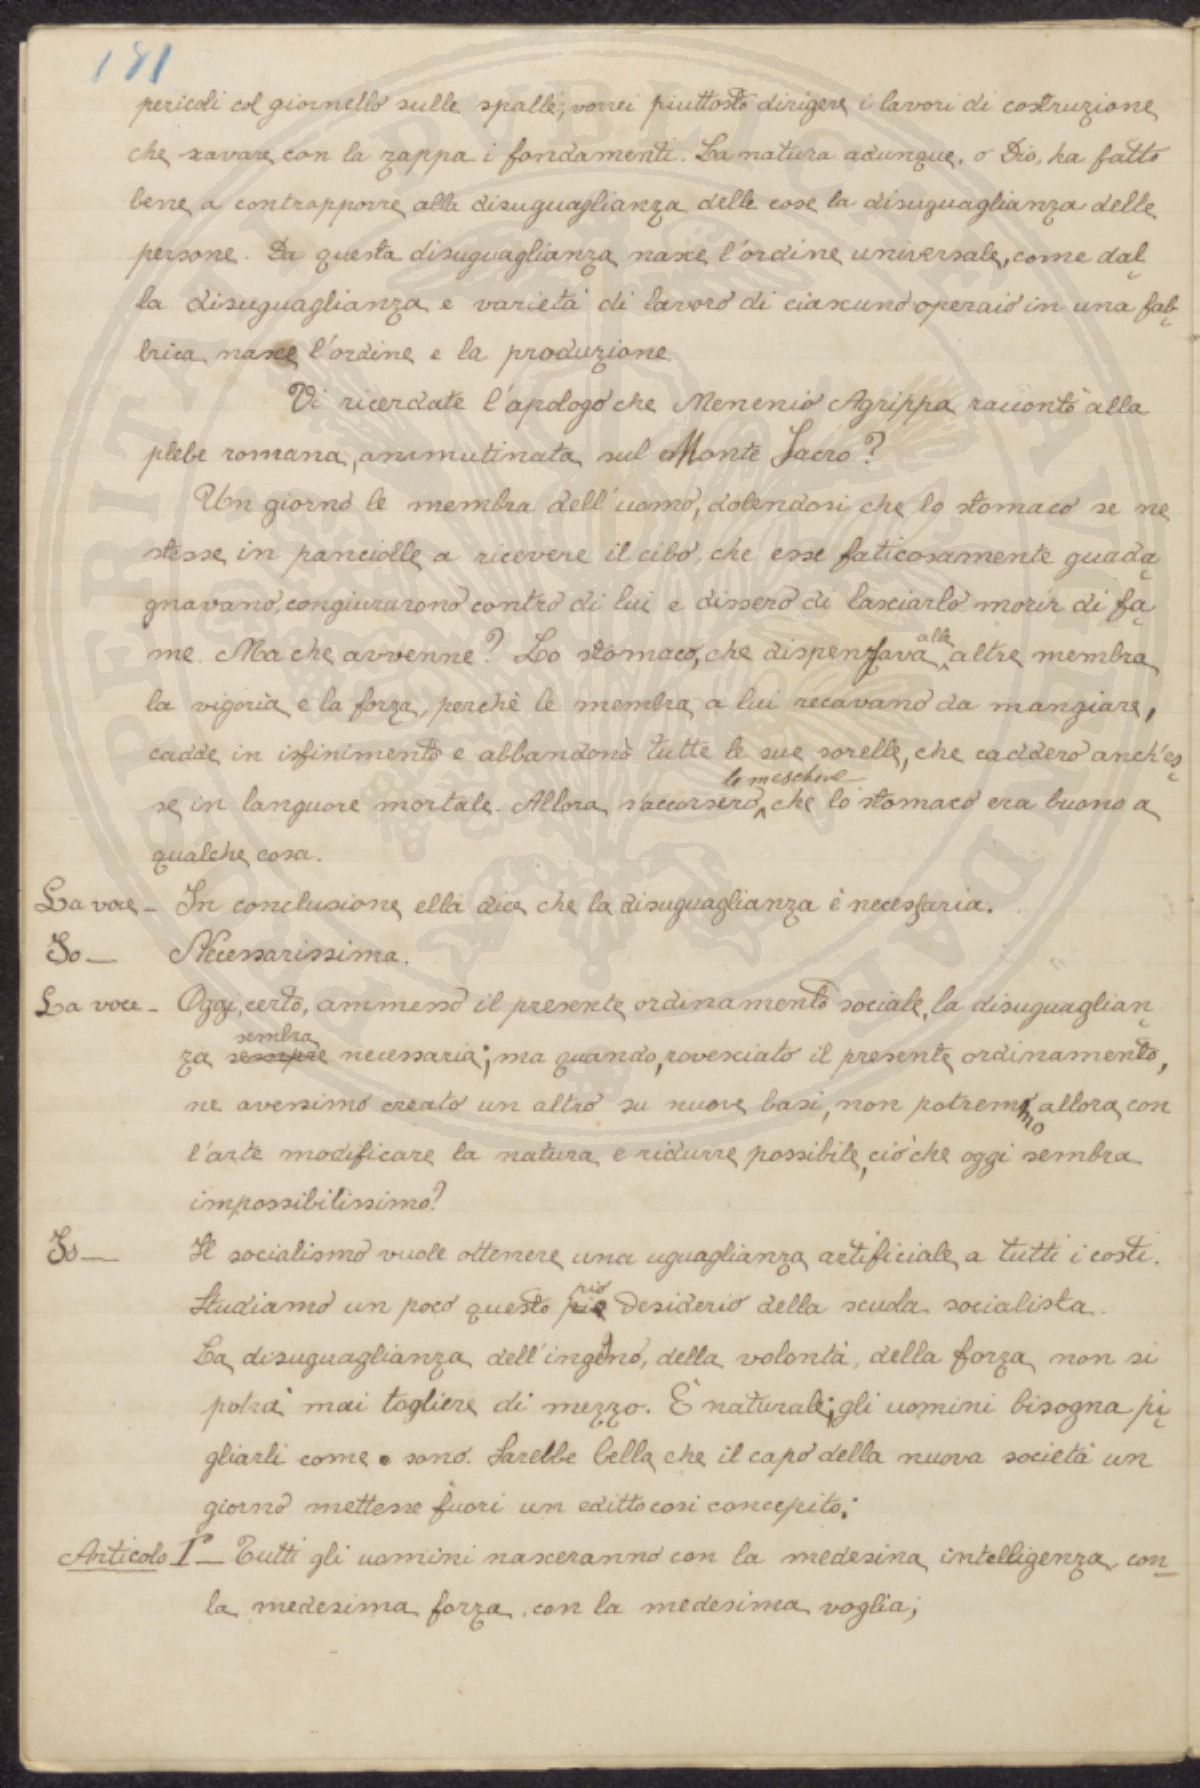 181
pericoli col giornello sulle spalle; vorrei piuttosto dirigere i lavori di costruzione
che scavare con la zappa i fondamenti. La natura adunque, o Dio, ha fatto
bene a contrapporre alla disuguaglianza delle cose la disuguaglianza delle
persone. Da questa disuguaglianza nasce l'ordine universale, come dal-
la disuguaglianza e varietà di lavoro di ciascuno operaio in una fab-
brica nasce l'ordine e la produzione.
Vi ricordate l'apologo che Menenio Agrippa raccontò alla
plebe romana, ammutinata sul Monte Sacro?
Un giorno le membra dell'uomo, dolendosi che lo stomaco se ne
stesse in panciolle a ricevere il cibo, che esse faticosamente guada-
gnavano, congiurarono contro di lui e dissero di lasciarlo morir di fa-
me. Ma che avvenne? Lo stomaco, che dispensava alle altre membra
la vigoria e la forza, perchè le membra a lui recavano da mangiare,
cadde in isfinimento e abbandonò tutte le sue sorelle, che caddero anch'es-
se in languore mortale. Allora s'accorsero le meschine che lo stomaco era buono a
qualche cosa.
La voce - In conclusione ella dice che la disuguaglianza è necessaria.
Io — Necessarissima.
La voce - Oggi, certo, ammesso il presente ordinamento sociale, la disuguaglian-
za sempre sembra necessaria; ma quando, rovesciato il presente ordinamento,
ne avessimo creato un altro su nuove basi, non potremmo allora con
l'arte modificare la natura e ridurre possibile, ciò che oggi sembra
impossibilissimo?
Io — Il socialismo vuole ottenere una uguaglianza artificiale a tutti i costi.
Studiamo un poco questo pio desiderio della scuola socialista.
La disuguaglianza dell'ingegno, della volontà, della forza non si
potrà mai togliere di mezzo. È naturale; gli uomini bisogna pi-
gliarli come sono. Sarebbe bella che il capo della nuova società un
giorno mettesse fuori un editto così concepito:
Articolo I° — Tutti gli uomini nasceranno con la medesima intelligenza, con
la medesima forza, con la medesima voglia;